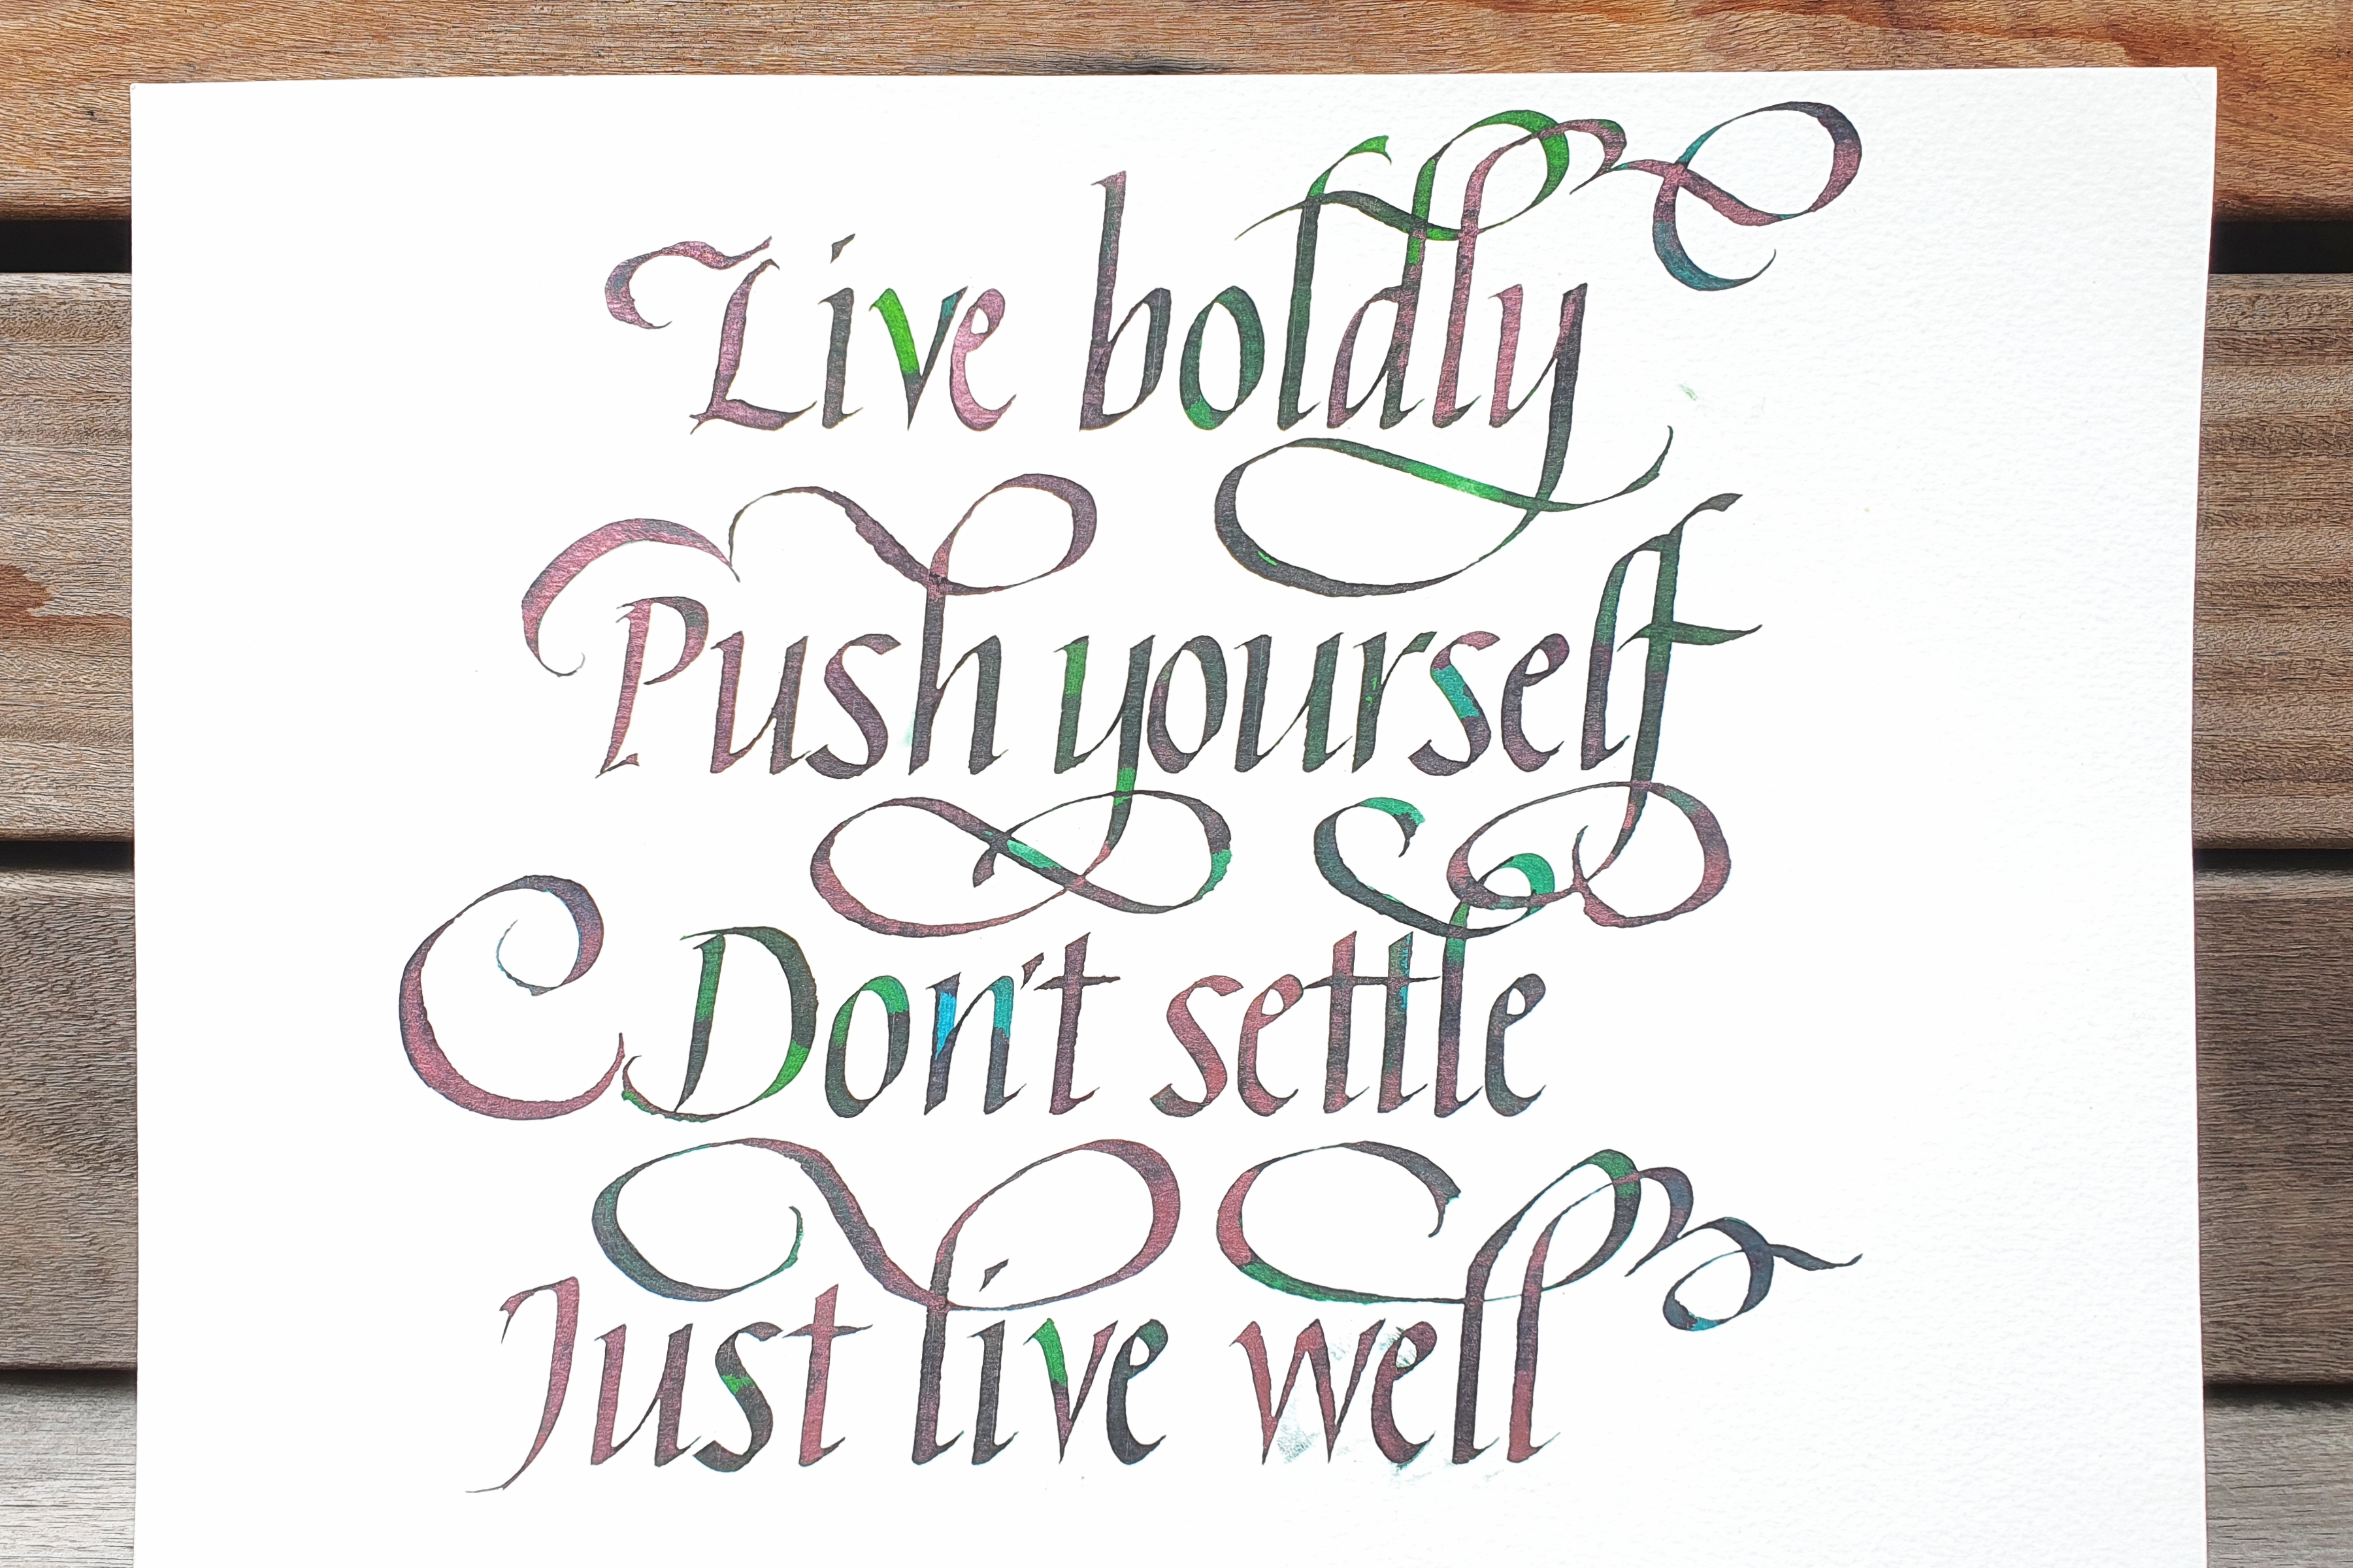 Live boldly
Push yourself
Don't settle
Just live well